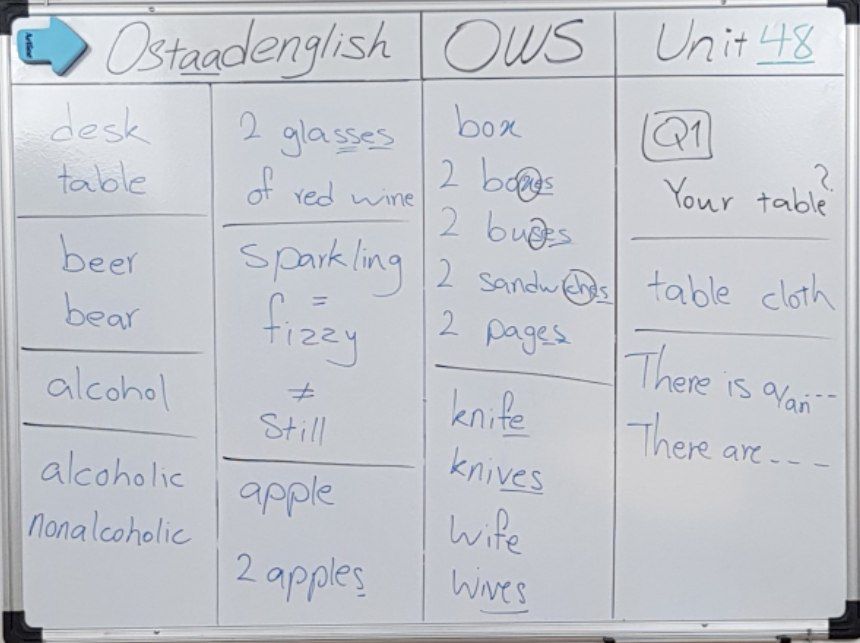 Ostaadenglish
OWS
Unit 48
desk
table
beer
bear
alcohol
alcoholic
nonalcoholic
2 glasses
of red wine
Sparkling
=
fizzy
≠
Still
apple
2 apples
box
2 boxes
2 buses
2 sandwiches
2 pages
knife
knives
Wife
Wives
Q1
Your table?
table cloth
There is a/an---
There are---